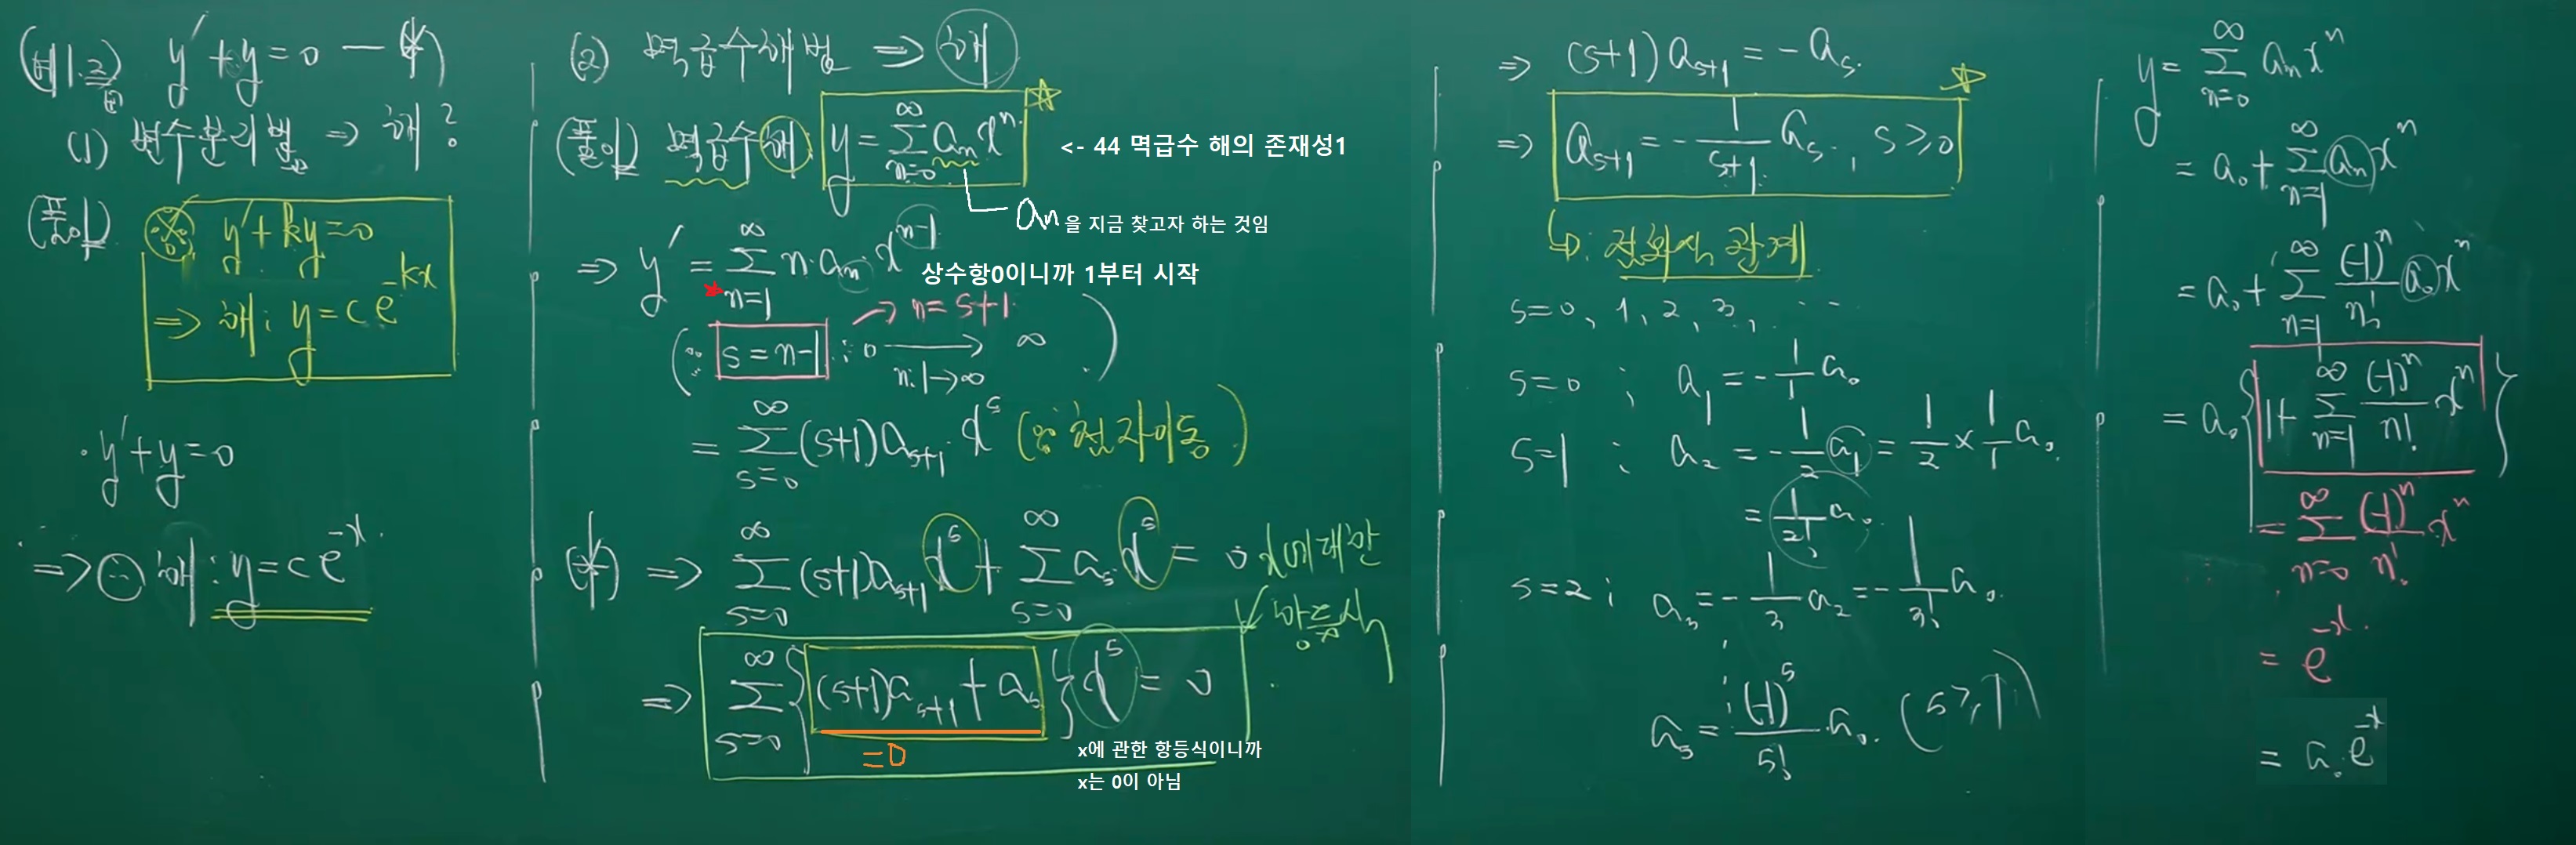 (예1.2) y' + y = 0 — (*)
(1) 변수분리법 ⇒ 해?
(풀이)
※ y' + ky = 0
⇒ 해: y = ce^{-kx}
· y' + y = 0
⇒ ∴ 해: y = ce^{-x}.
(2) 멱급수해법 ⇒ 해
(풀이) 멱급수해: y = \sum_{n=0}^{∞} a_n x^n. ☆
<- 44 멱급수 해의 존재성1
a_n 을 지금 찾고자 하는 것임
⇒ y' = \sum_{n=1}^{∞} n·a_n·x^{n-1}
상수항0이니까 1부터 시작
→ n = s+1
(∵ s = n-1 : 0 → ∞ )
n: 1 → ∞
= \sum_{s=0}^{∞} (s+1) a_{s+1} x^s (∵ 첨자이동)
(*) ⇒ \sum_{s=0}^{∞} (s+1) a_{s+1} x^s + \sum_{s=0}^{∞} a_s x^s = 0
x에 대한
항등식
⇒ \sum_{s=0}^{∞} { (s+1) a_{s+1} + a_s } x^s = 0
=0
x에 관한 항등식이니까
x는 0이 아님
⇒ (s+1) a_{s+1} = - a_s.
⇒ a_{s+1} = - \frac{1}{s+1} a_s, s ≥ 0 ☆
↳: 점화식 관계
s = 0, 1, 2, 3, ...
s = 0 ; a_1 = - \frac{1}{1} a_0
s = 1 ; a_2 = - \frac{1}{2} a_1 = \frac{1}{2} × \frac{1}{1} a_0.
= \frac{1}{2!} a_0.
s = 2 ; a_3 = - \frac{1}{3} a_2 = - \frac{1}{3!} a_0.
⋮
a_s = \frac{(-1)^s}{s!} a_0. (s ≥ 1)
y = \sum_{n=0}^{∞} a_n x^n
= a_0 + \sum_{n=1}^{∞} a_n x^n
= a_0 + \sum_{n=1}^{∞} \frac{(-1)^n}{n!} a_0 x^n
= a_0 { 1 + \sum_{n=1}^{∞} \frac{(-1)^n}{n!} x^n }
= \sum_{n=0}^{∞} \frac{(-1)^n}{n!} x^n
= e^{-x}.
= a_0 e^{-x}